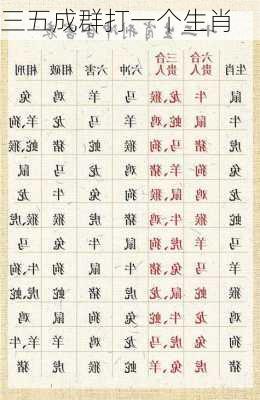 三五成群打一个生肖
生肖 六合贵人 三合贵人 六冲 六害 相破 相刑
鼠 牛 龙,猴 马 羊 鸡 兔
牛 鼠 蛇,鸡 羊 马 龙 羊,狗
虎 猪 马,狗 猴 蛇 猪 蛇,猴
兔 狗 羊,猪 鸡 龙 马 鼠
龙 鸡 鼠,猴 狗 兔 牛 龙
蛇 猴 牛,鸡 猪 虎 猴 猴,虎
马 羊 虎,狗 鼠 牛 兔 马
羊 马 兔,猪 牛 鼠 狗 牛,狗
猴 蛇 鼠,龙 虎 猪 蛇 虎,蛇
鸡 龙 牛,蛇 兔 狗 鼠 鸡
狗 兔 虎,马 龙 鸡 羊 羊,牛
猪 虎 兔,羊 蛇 猴 虎 猪